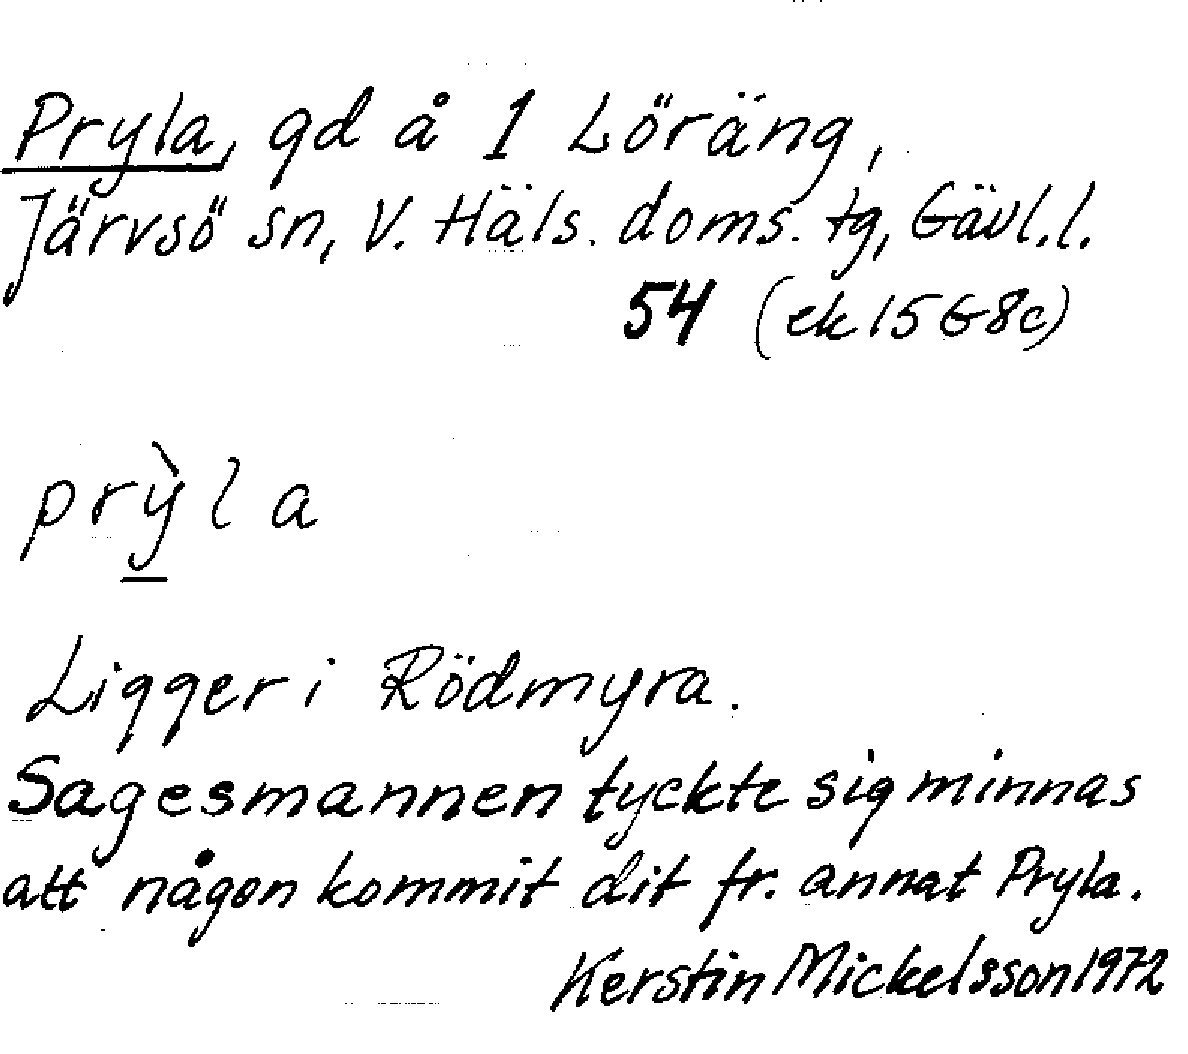 Pryla, gd å 1 Löräng,
Järvsö sn, V. Häls. doms. tg, Gävl.l.
54 (ek 15 G8c)
prỳla
Ligger i Rödmyra.
Sagesmannen tyckte sig minnas
att någon kommit dit fr. annat Pryla.
Kerstin Mickelsson 1972